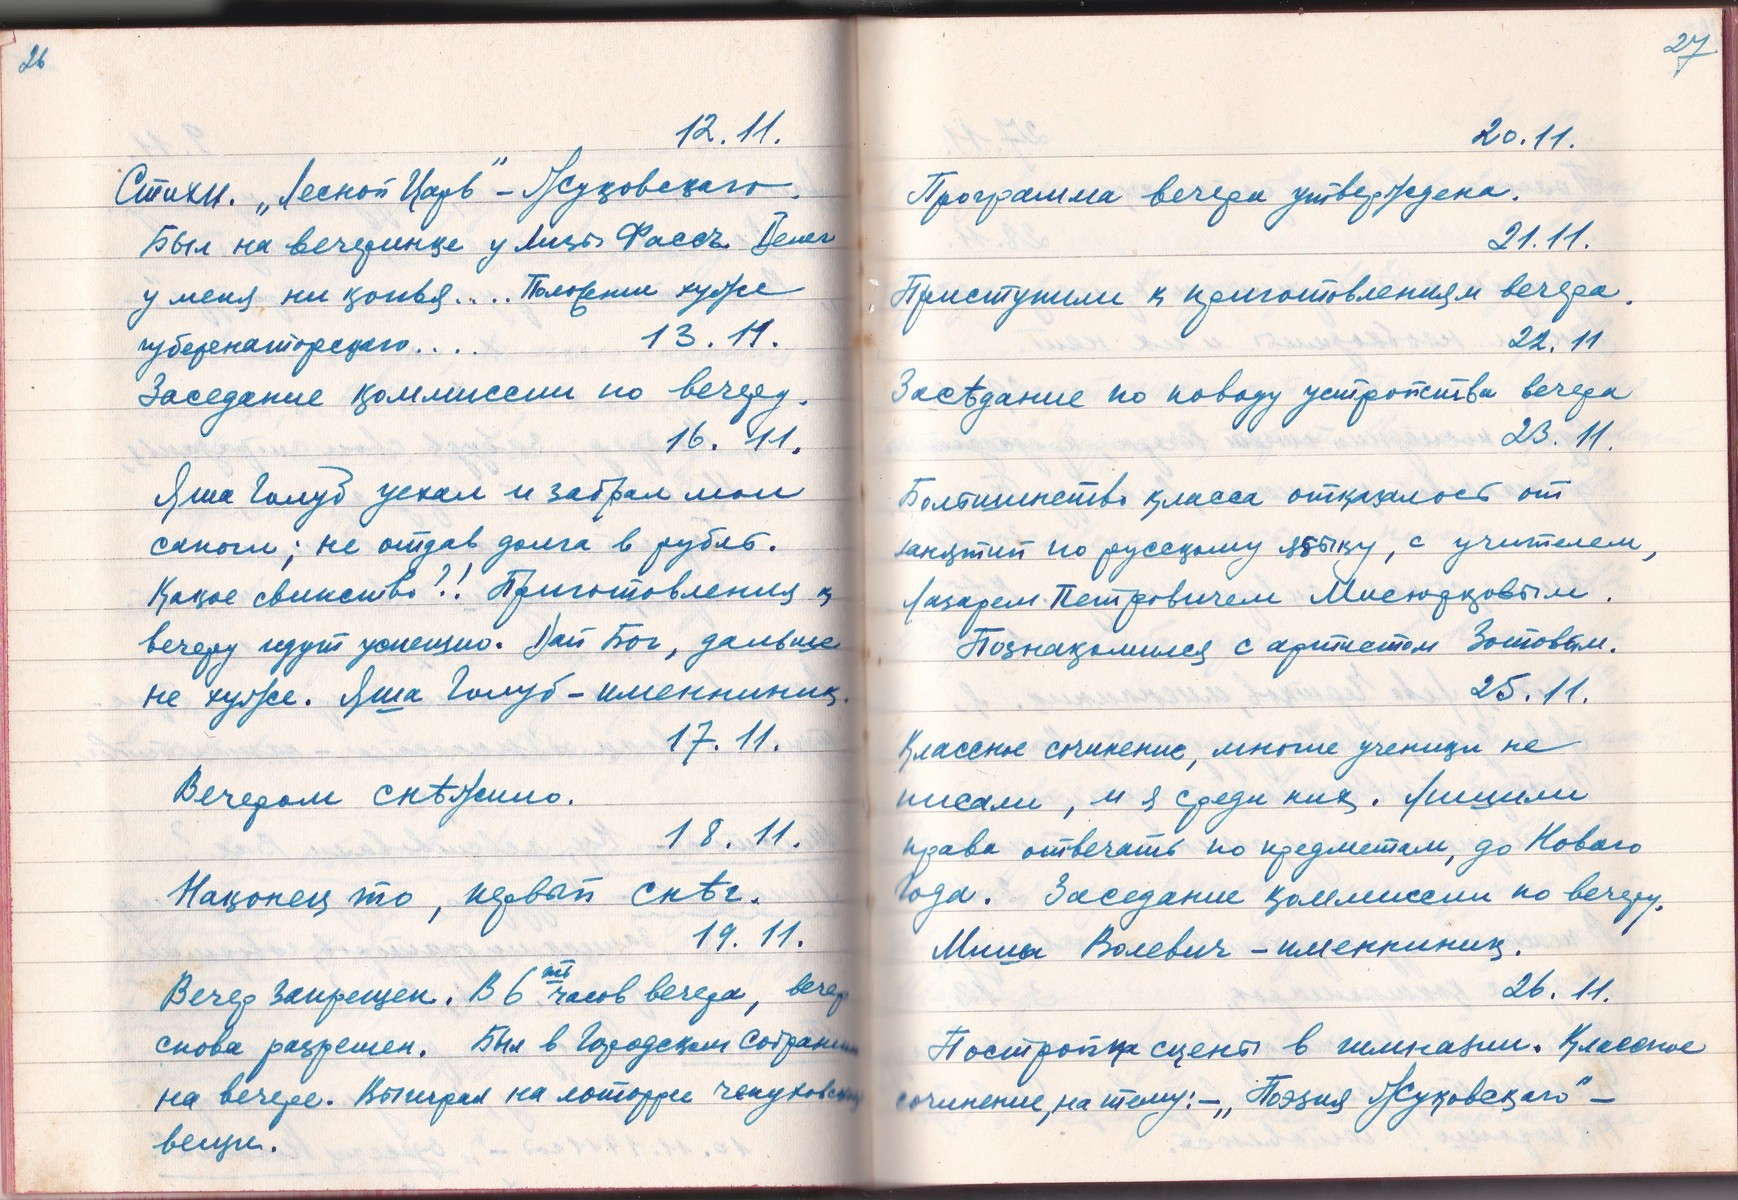 26
12.11.
Стихи. „Лесной Царь" – Жуковскаго.
Был на вечеринке у Лизы Фассъ. Денег
у меня ни копья.... Положение хуже
губернаторскаго....   13.11.
Заседание коммиссии по вечеру.
16. 11.
Яша Голуб уехал и забрал мои
сапоги; не отдав долга в рубль.
Какое свинство?!! Приготовления к
вечеру идут успешно. Дай Бог, дальше
не хуже. Яша Голуб – именинник.
17.11.
Вечером снѣжило.
18.11.
Наконец то, первый снѣг.
19.11.
Вечер запрещен. В 6ть часов вечера, вечер
снова разрешен. Был в Городском Собрании
на вечере. Выиграл на лоторрее
вещи.
27
20.11.
Программа вечера утверждена.
21.11.
Приступили к приготовлениям вечера.
22.11
Засѣдание по поводу устройства вечера
23. 11.
Большинство класса отказалось от
занятий по русскому языку, с учителем,
Лазарем Петровичем Мисюрковым.
Познакомился с артистом Зотовым.
25.11.
Классное сочинение, многие ученики не
писали, и я среди них. Лишили
права отвечать по предметам, до Новаго
Года. Заседание коммиссии по вечеру.
Миша Волевич – именинник.
26. 11.
Постройка сцены в гимназии. Классное
сочинение, на тему:–„Поэзия Жуковскаго" –